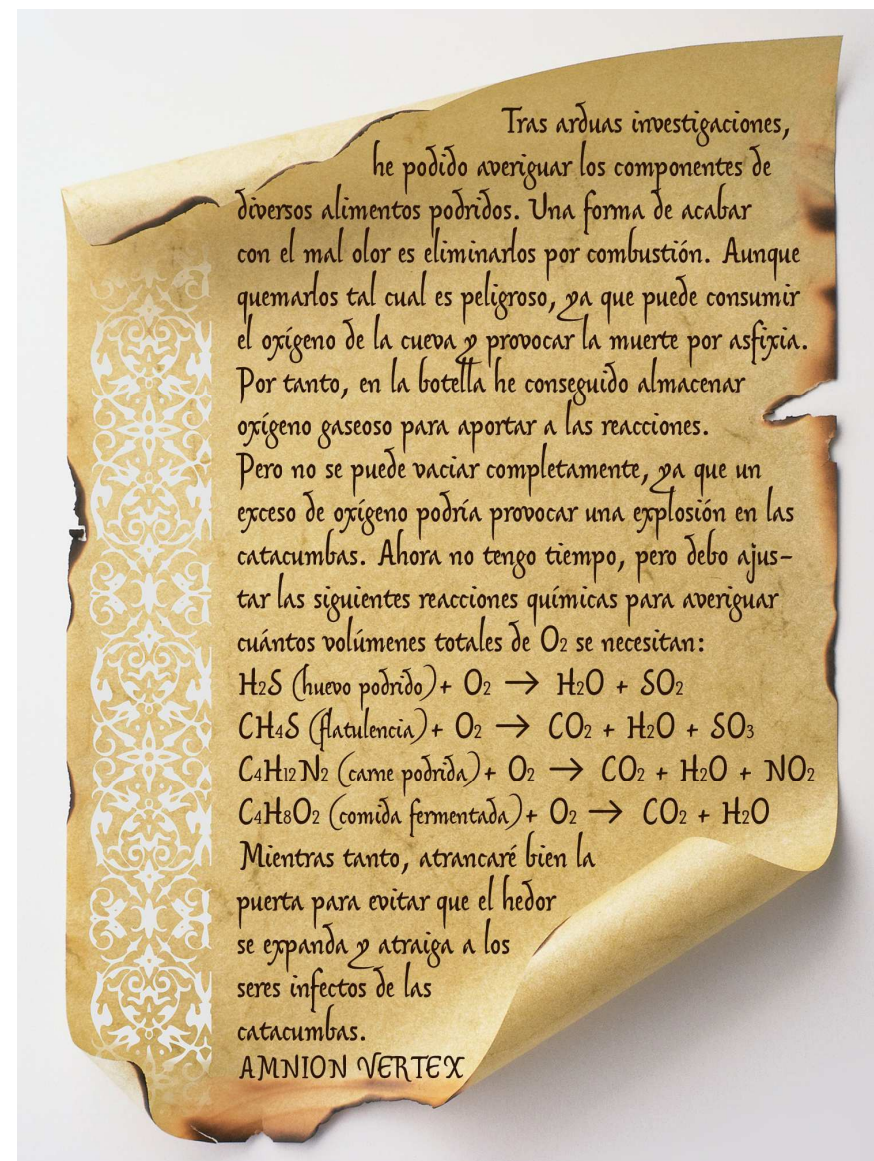 Tras arduas investigaciones,
he podido averiguar los componentes de
diversos alimentos podridos. Una forma de acabar
con el mal olor es eliminarlos por combustión. Aunque
quemarlos tal cual es peligroso, ya que puede consumir
el oxígeno de la cueva y provocar la muerte por asfixia.
Por tanto, en la botella he conseguido almacenar
oxígeno gaseoso para aportar a las reacciones.
Pero no se puede vaciar completamente, ya que un
exceso de oxígeno podría provocar una explosión en las
catacumbas. Ahora no tengo tiempo, pero debo ajus-
tar las siguientes reacciones químicas para averiguar
cuántos volúmenes totales de O₂ se necesitan:
H₂S (huevo podrido) + O₂ → H₂O + SO₂
CH₄S (flatulencia) + O₂ → CO₂ + H₂O + SO₃
C₄H₁₂N₂ (carne podrida) + O₂ → CO₂ + H₂O + NO₂
C₄H₈O₂ (comida fermentada) + O₂ → CO₂ + H₂O
Mientras tanto, atrancaré bien la
puerta para evitar que el hedor
se expanda y atraiga a los
seres infectos de las
catacumbas.
AMNION VERTEX